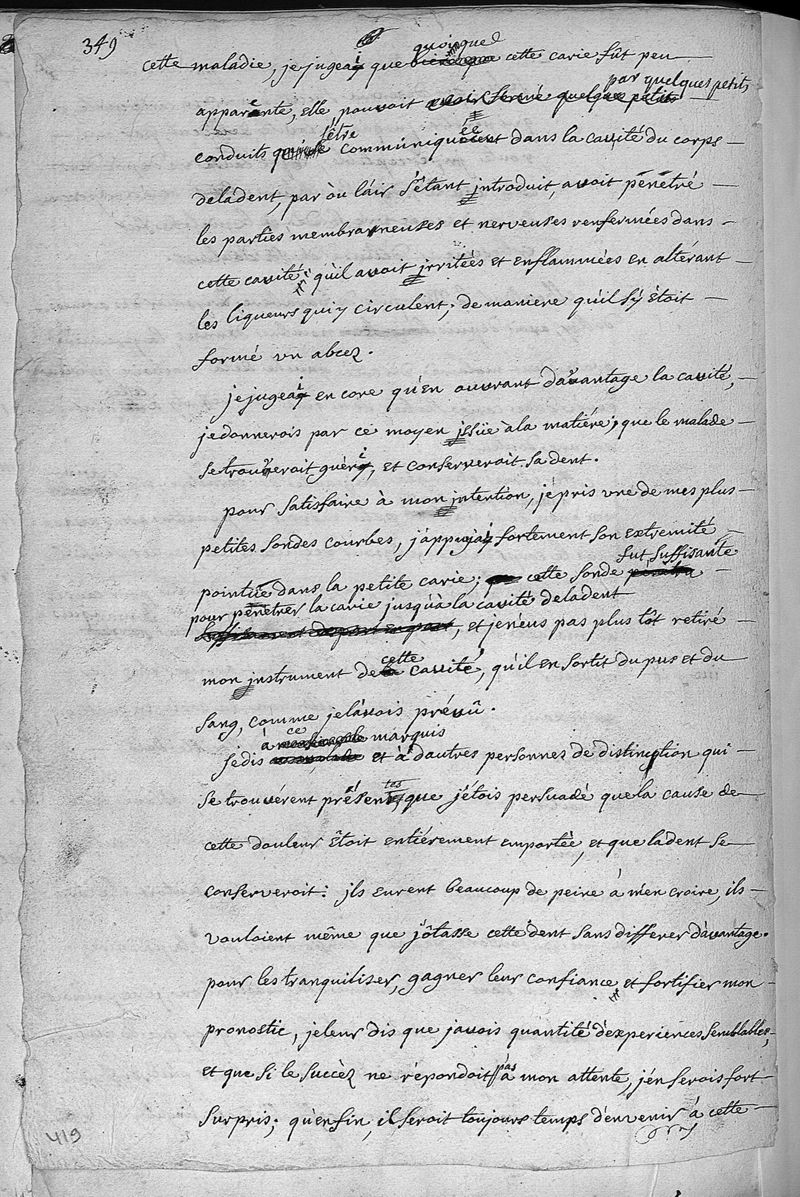 349
quoique
cette maladie, je jugeai que cette carie fût peu
par quelques petits
apparente, elle pouvoit avoir formé quelque petits
être
conduits communiquée dans la cavité du corps
deladent, par où láir s'étant introduit, avoit pénétré
les parties membraneuses et nerveuses renfermées dans
cette cavité; qu'il avoit irritées et enflammées en altérant
les liqueurs qui y circulent; de maniere qu'il s'y étoit
formé un abcez.
je jugeai encore qu'en ouvrant davantage la cavité,
je donnerois par ce moyen issüe ala matiére; que le malade
se trouveroit guéri, et conserveroit sa dent.
pour satisfaire à mon intention, je pris une de mes plus
petites sondes courbes, j'appuyai fortement son extremité
fut suffisante
pointüe dans la petite carie; cette sonde pénétra
pour pénétrer la carie jusqu'à la cavité deladent
, et je n'eus pas plus tôt retiré
cette
mon instrument de la cavité, qu'il en sortit du pus et du
sang, comme je lavois prévû.
à ce marquis
je dis et à d'autres personnes de distinction qui
tes
se trouvérent présens, que j'étois persuadé que la cause de
cette douleur étoit entiérement emportée, et que ladent se
conserveroit: ils eurent beaucoup de peine à m'en croire, ils
vouloient même que j'ôtasse cette dent sans differer d'avantage.
pour les tranquiliser, gagner leur confiance et fortifier mon
pronostic, je leur dis que j'avois quantité d'experiences semblables,
pas
et que si le succèz ne répondoit à mon attente, j'en serois fort
surpris; qu'enfin, il seroit toujours temps d'en venir à cette
419